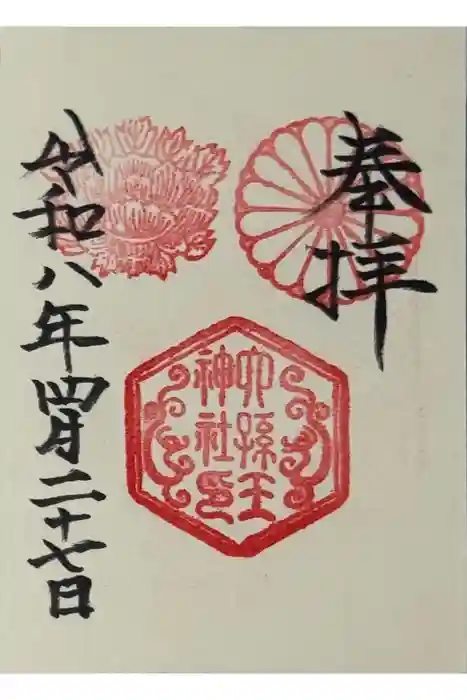 奉拝
六孫王
神社印
令和八年四月二十七日